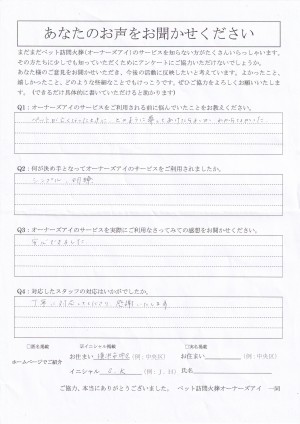 あなたのお声をお聞かせください
まだまだペット訪問火葬(オーナーズアイ)のサービスを知らない方がたくさんいらっしゃいます。
その方たちに少しでも知っていただくためにアンケートにご協力いただけないでしょうか。
あなた様のご意見をお聞かせいただき、今後の活動に反映したいと考えています。よかったこと、
嬉しかったこと、どのような些細なことでもけっこうです。ぜひご協力をよろしくお願いいたしま
す。(できるだけ具体的に書いていただけると助かります)
Q1:オーナーズアイのサービスをご利用される前に悩んでいたことをお教えください。
ペットが亡くなったときに、どのように葬ってあげたらよいか わからなかった。
Q2:何が決め手となってオーナーズアイのサービスをご利用されましたか。
シンプル、明瞭
Q3:オーナーズアイのサービスを実際にご利用なさってみての感想をお聞かせください。
安心できました
Q4:対応したスタッフの対応はいかがでしたか。
丁寧に対応いただき 感謝いたします
□匿名掲載
☑イニシャル掲載
□実名掲載
ホームページでご紹介
お住まい
(例:中央区)
お住まい
(例:中央区)
イニシャル
(例:J.H)
氏名
ご協力、本当にありがとうございました。 ペット訪問火葬オーナーズアイ 一同